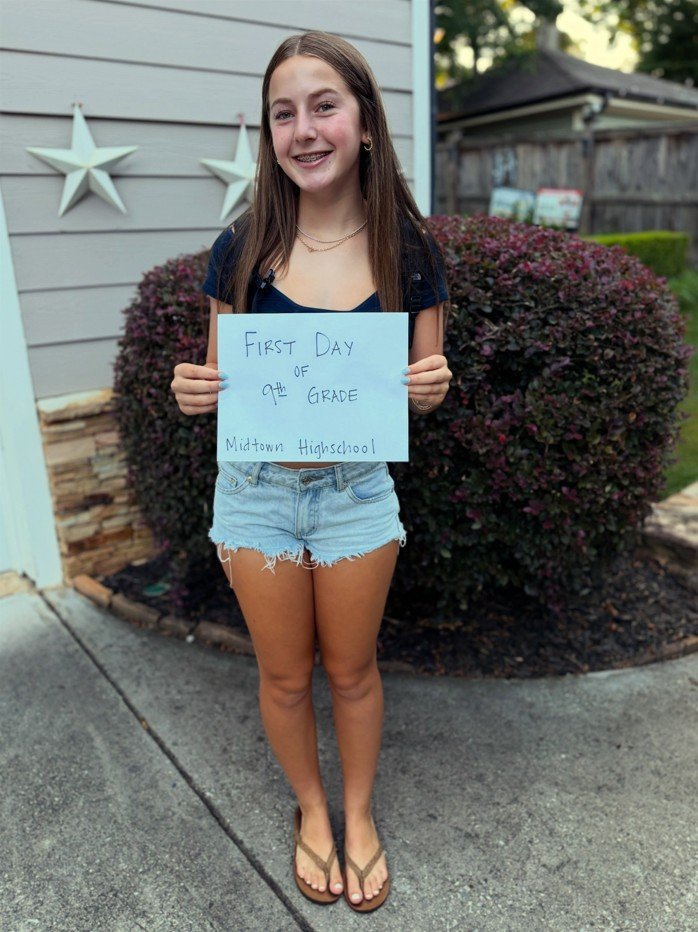 First Day
of
9th Grade
Midtown Highschool